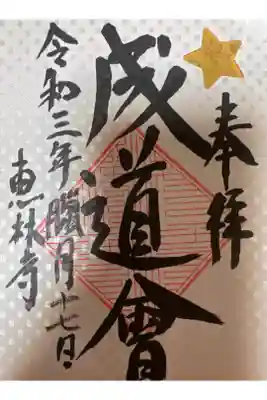 奉拝
成道會
令和三年臘月十七日
恵林寺